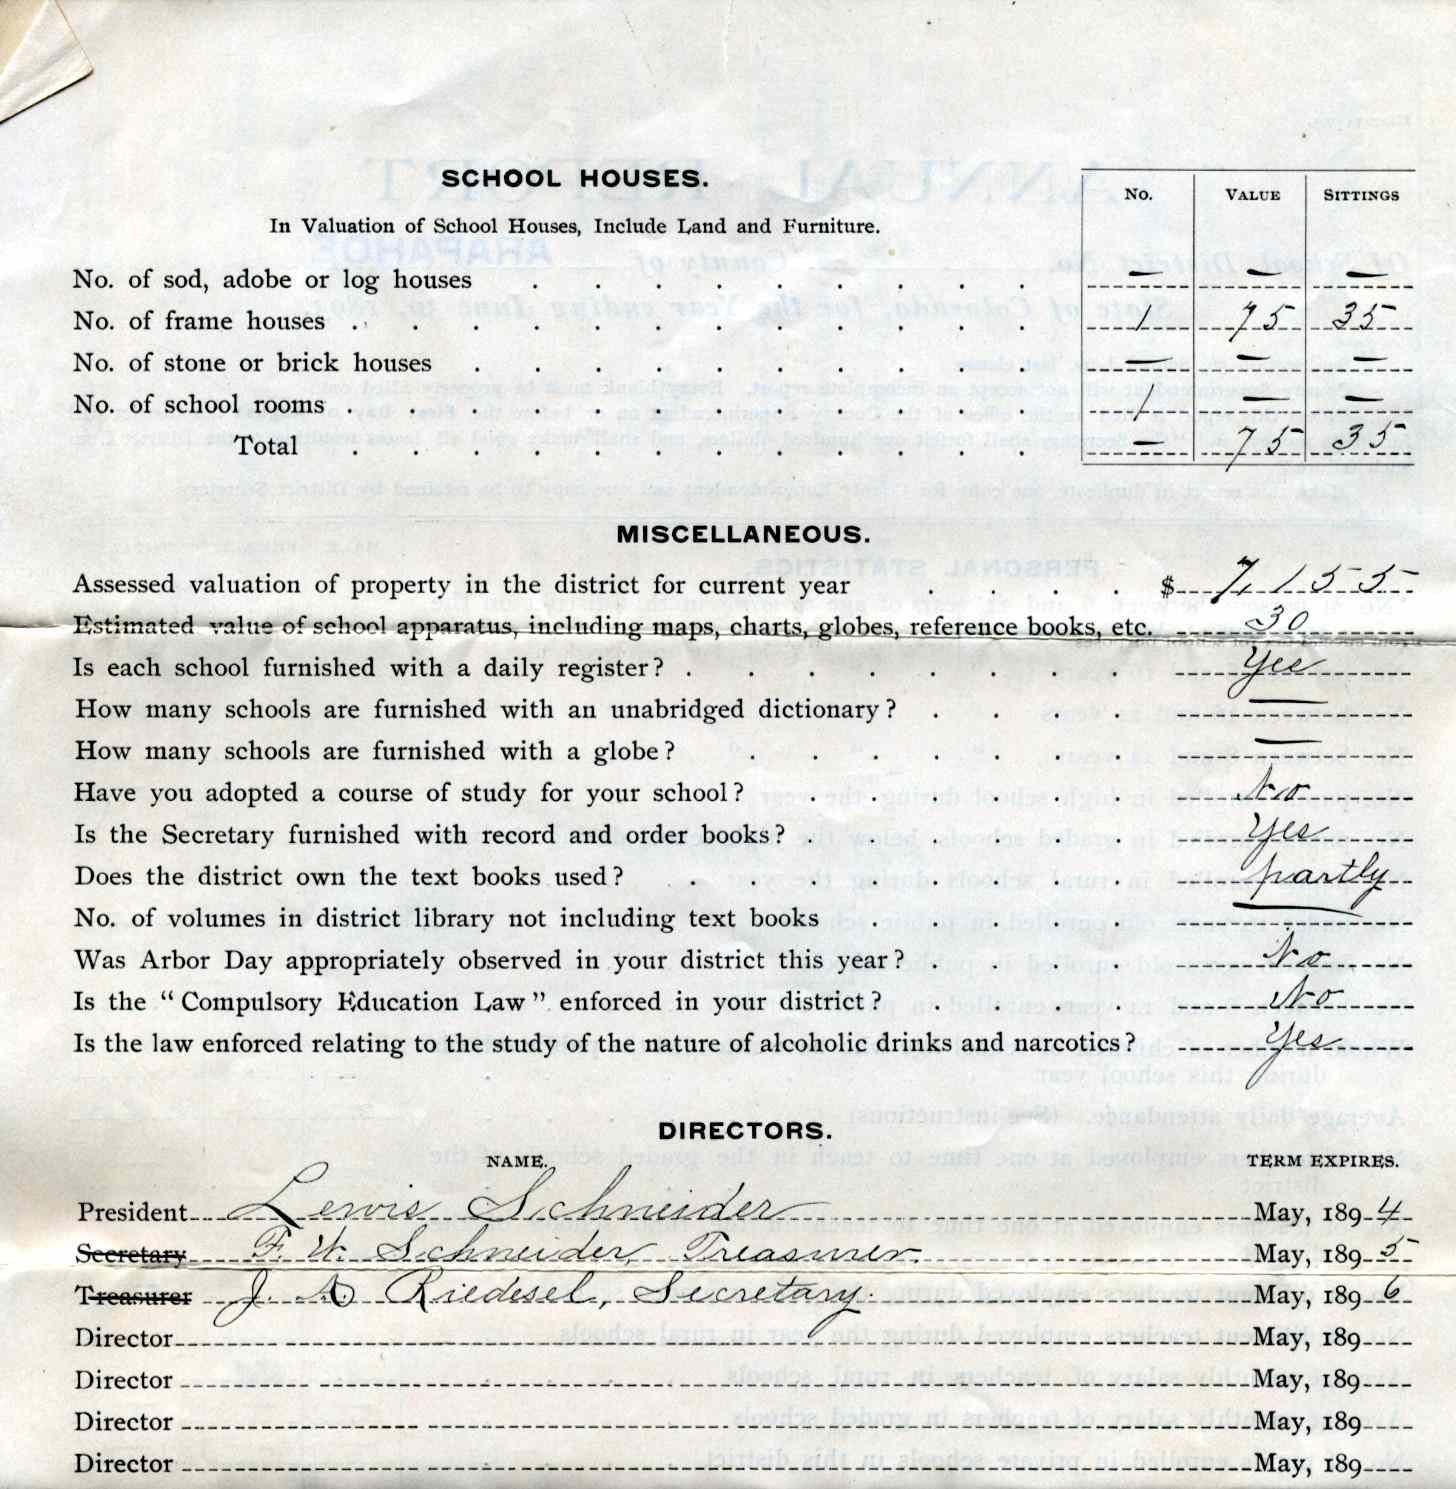 SCHOOL HOUSES.
In Valuation of School Houses, Include Land and Furniture.
No. VALUE SITTINGS
No. of sod, adobe or log houses . . . . . . . . . — — —
No. of frame houses . . . . . . . . . . . . 1 75 35
No. of stone or brick houses . . . . . . . . . . — — —
No. of school rooms . . . . . . . . . . . . 1 — —
Total . . . . . . . . . . . . — 75 35
MISCELLANEOUS.
Assessed valuation of property in the district for current year . . . . $ 7,155
Estimated value of school apparatus, including maps, charts, globes, reference books, etc. 30
Is each school furnished with a daily register? . . . . . . . . Yes
How many schools are furnished with an unabridged dictionary? . . . . —
How many schools are furnished with a globe? . . . . . . . —
Have you adopted a course of study for your school? . . . . . . No
Is the Secretary furnished with record and order books? . . . . . . Yes
Does the district own the text books used? . . . . . . . . partly
No. of volumes in district library not including text books . . . . . —
Was Arbor Day appropriately observed in your district this year? . . . . No
Is the “Compulsory Education Law” enforced in your district? . . . . No
Is the law enforced relating to the study of the nature of alcoholic drinks and narcotics? Yes
DIRECTORS.
NAME. TERM EXPIRES.
President Lewis Schneider May, 1894
Secretary F. W. Schneider, Treasurer. May, 1895
Treasurer J. A. Riedesel, Secretary. May, 1896
Director May, 189
Director May, 189
Director May, 189
Director May, 189